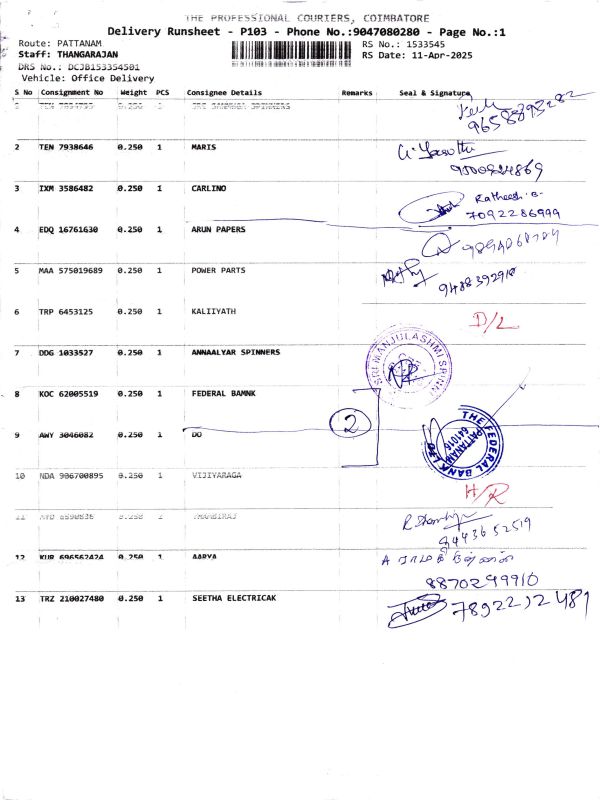 THE PROFESSIONAL COURIERS, COIMBATORE
Delivery Runsheet - P103 - Phone No.:9047080280 - Page No.:1
Route: PATTANAM RS No.: 1533545
Staff: THANGARAJAN RS Date: 11-Apr-2025
DRS No.: DCJB153354501
Vehicle: Office Delivery
S No Consignment No Weight PCS Consignee Details Remarks Seal & Signature
0.250 1 SPINNERS
9658893282
2 TEN 7938646 0.250 1 MARIS
9500924869
3 IXM 3586482 0.250 1 CARLINO Ratheesh.B.
7092286999
4 EDQ 16761630 0.250 1 ARUN PAPERS
5 MAA 575019689 0.250 1 POWER PARTS
9488392910
6 TRP 6453125 0.250 1 KALIIYATH D/L
7 DDG 1033527 0.250 1 ANNAALYAR SPINNERS
SRI MANJULASHMI SPINN
8 KOC 62005519 0.250 1 FEDERAL BAMNK
2
THE FEDERAL BANK LTD
PATTANAM
641016
9 AWY 3046082 0.250 1 DO
10 NDA 906700895 0.250 1 VIJIYARAGA H/R
11 0.250 THAMBIRAJ
9443652519
12 KUR 696562424 0.250 1 AARYA
8870299910
13 TRZ 210027480 0.250 1 SEETHA ELECTRICAK
7892212481